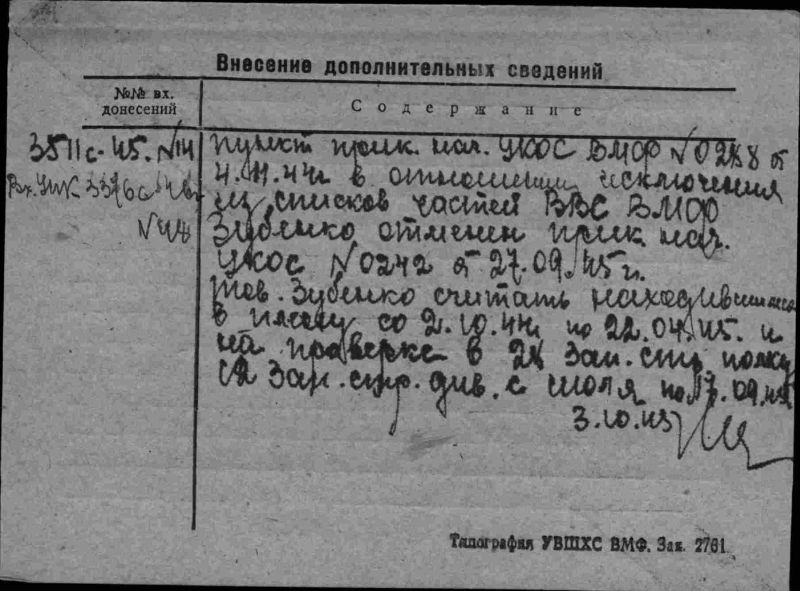 Внесение дополнительных сведений
№№ вх. донесений
Содержание
3511с-45. N14
N48
пункт прик. нач. УКОС ВМФ N 0288 от
4.11.44г в отношении исключения
из списков частей ВВС ВМФ
Зубенко отменен прик. нач.
УКОС N 0242 от 27.09.45 г.
тов. Зубенко считать находившимся
в плену со 2.10.44г по 22.04.45. и
на проверке в Зап. стр. полку
12 Зап. стр. див. с июля по 17.09.45
3.10.45
Типография УВШХС ВМФ. Зак. 2761